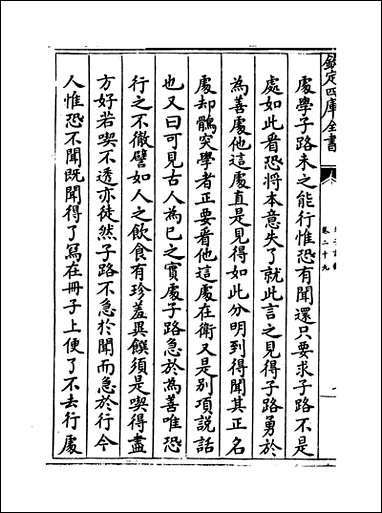 欽定四庫全書
卷二十九
處學子路未之能行惟恐有聞還只要求子路不是
處如此看恐將本意失了就此言之見得子路勇於
為善處他這處直是見得如此分明到得聞其正名
處却鶻突學者正要看他這處在衛又是別項說話
也又曰可見古人為己之實處子路急於為善唯恐
行之不徹譬如人之飲食有珍羞異饌須是喫得盡
方好若喫不透亦徒然子路不急於聞而急於行今
人惟恐不聞既聞得了寫在冊子上便了不去行處